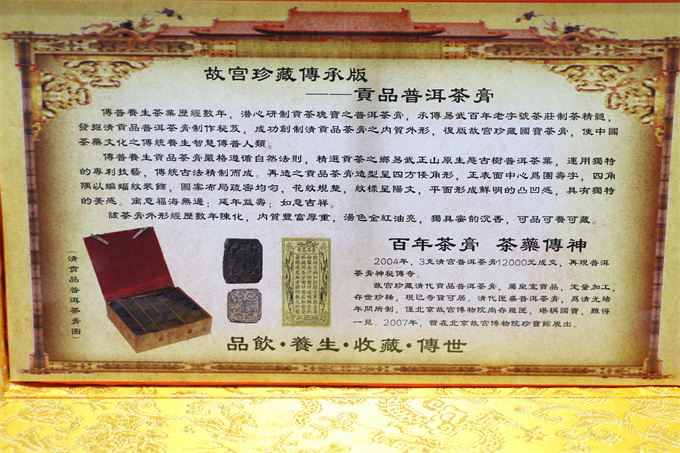 故宫珍藏傳承版
——貢品普洱茶膏
傳普養生茶業歷經數年，潜心研制貢茶瑰寶之普洱茶膏，承傳易武百年老字號茶莊制茶精髓，
發掘清貢品普洱茶膏制作秘笈，成功創制清貢品茶膏之内質外形，復版故宫珍藏國寶茶膏，使中國
茶藥文化之傳統養生智慧傳普人類。
傳普養生貢品茶膏嚴格遵循自然法則，精選貢茶之鄉易武正山原生態古樹普洱茶葉，運用獨特
的專利技藝，傳統古法精制而成。再造之貢品茶膏造型呈四方倭角形，正表面中心爲團壽字，四角
隅以蝙蝠紋裝飾，圖案布局疏密均匀，花紋規整，紋樣呈陽文，平面形成鮮明的凸凹感，具有獨特
的美感。寓意福海無邊；延年益壽；如意吉祥。
該茶膏外形經歷數年陳化，内質豐富厚重，湯色金紅油亮，獨具蜜韵沉香，可品可養可藏。
百年茶膏 茶藥傳神
2004年，3克清宫普洱茶膏12000元成交，再現普洱
茶膏神秘傳奇。
故宫珍藏清代貢品普洱茶膏，屬皇室貢品，定量加工，
存世珍稀，現已奇貨可居。清代匣盛普洱茶膏，爲清光緒
年間所制，僅北京故宫博物院尚存幾匣，堪稱國寶，難得
一見。2007年，曾在北京故宫博物院珍寶館展出。
（清貢品普洱茶膏圖）
品飲·養生·收藏·傳世